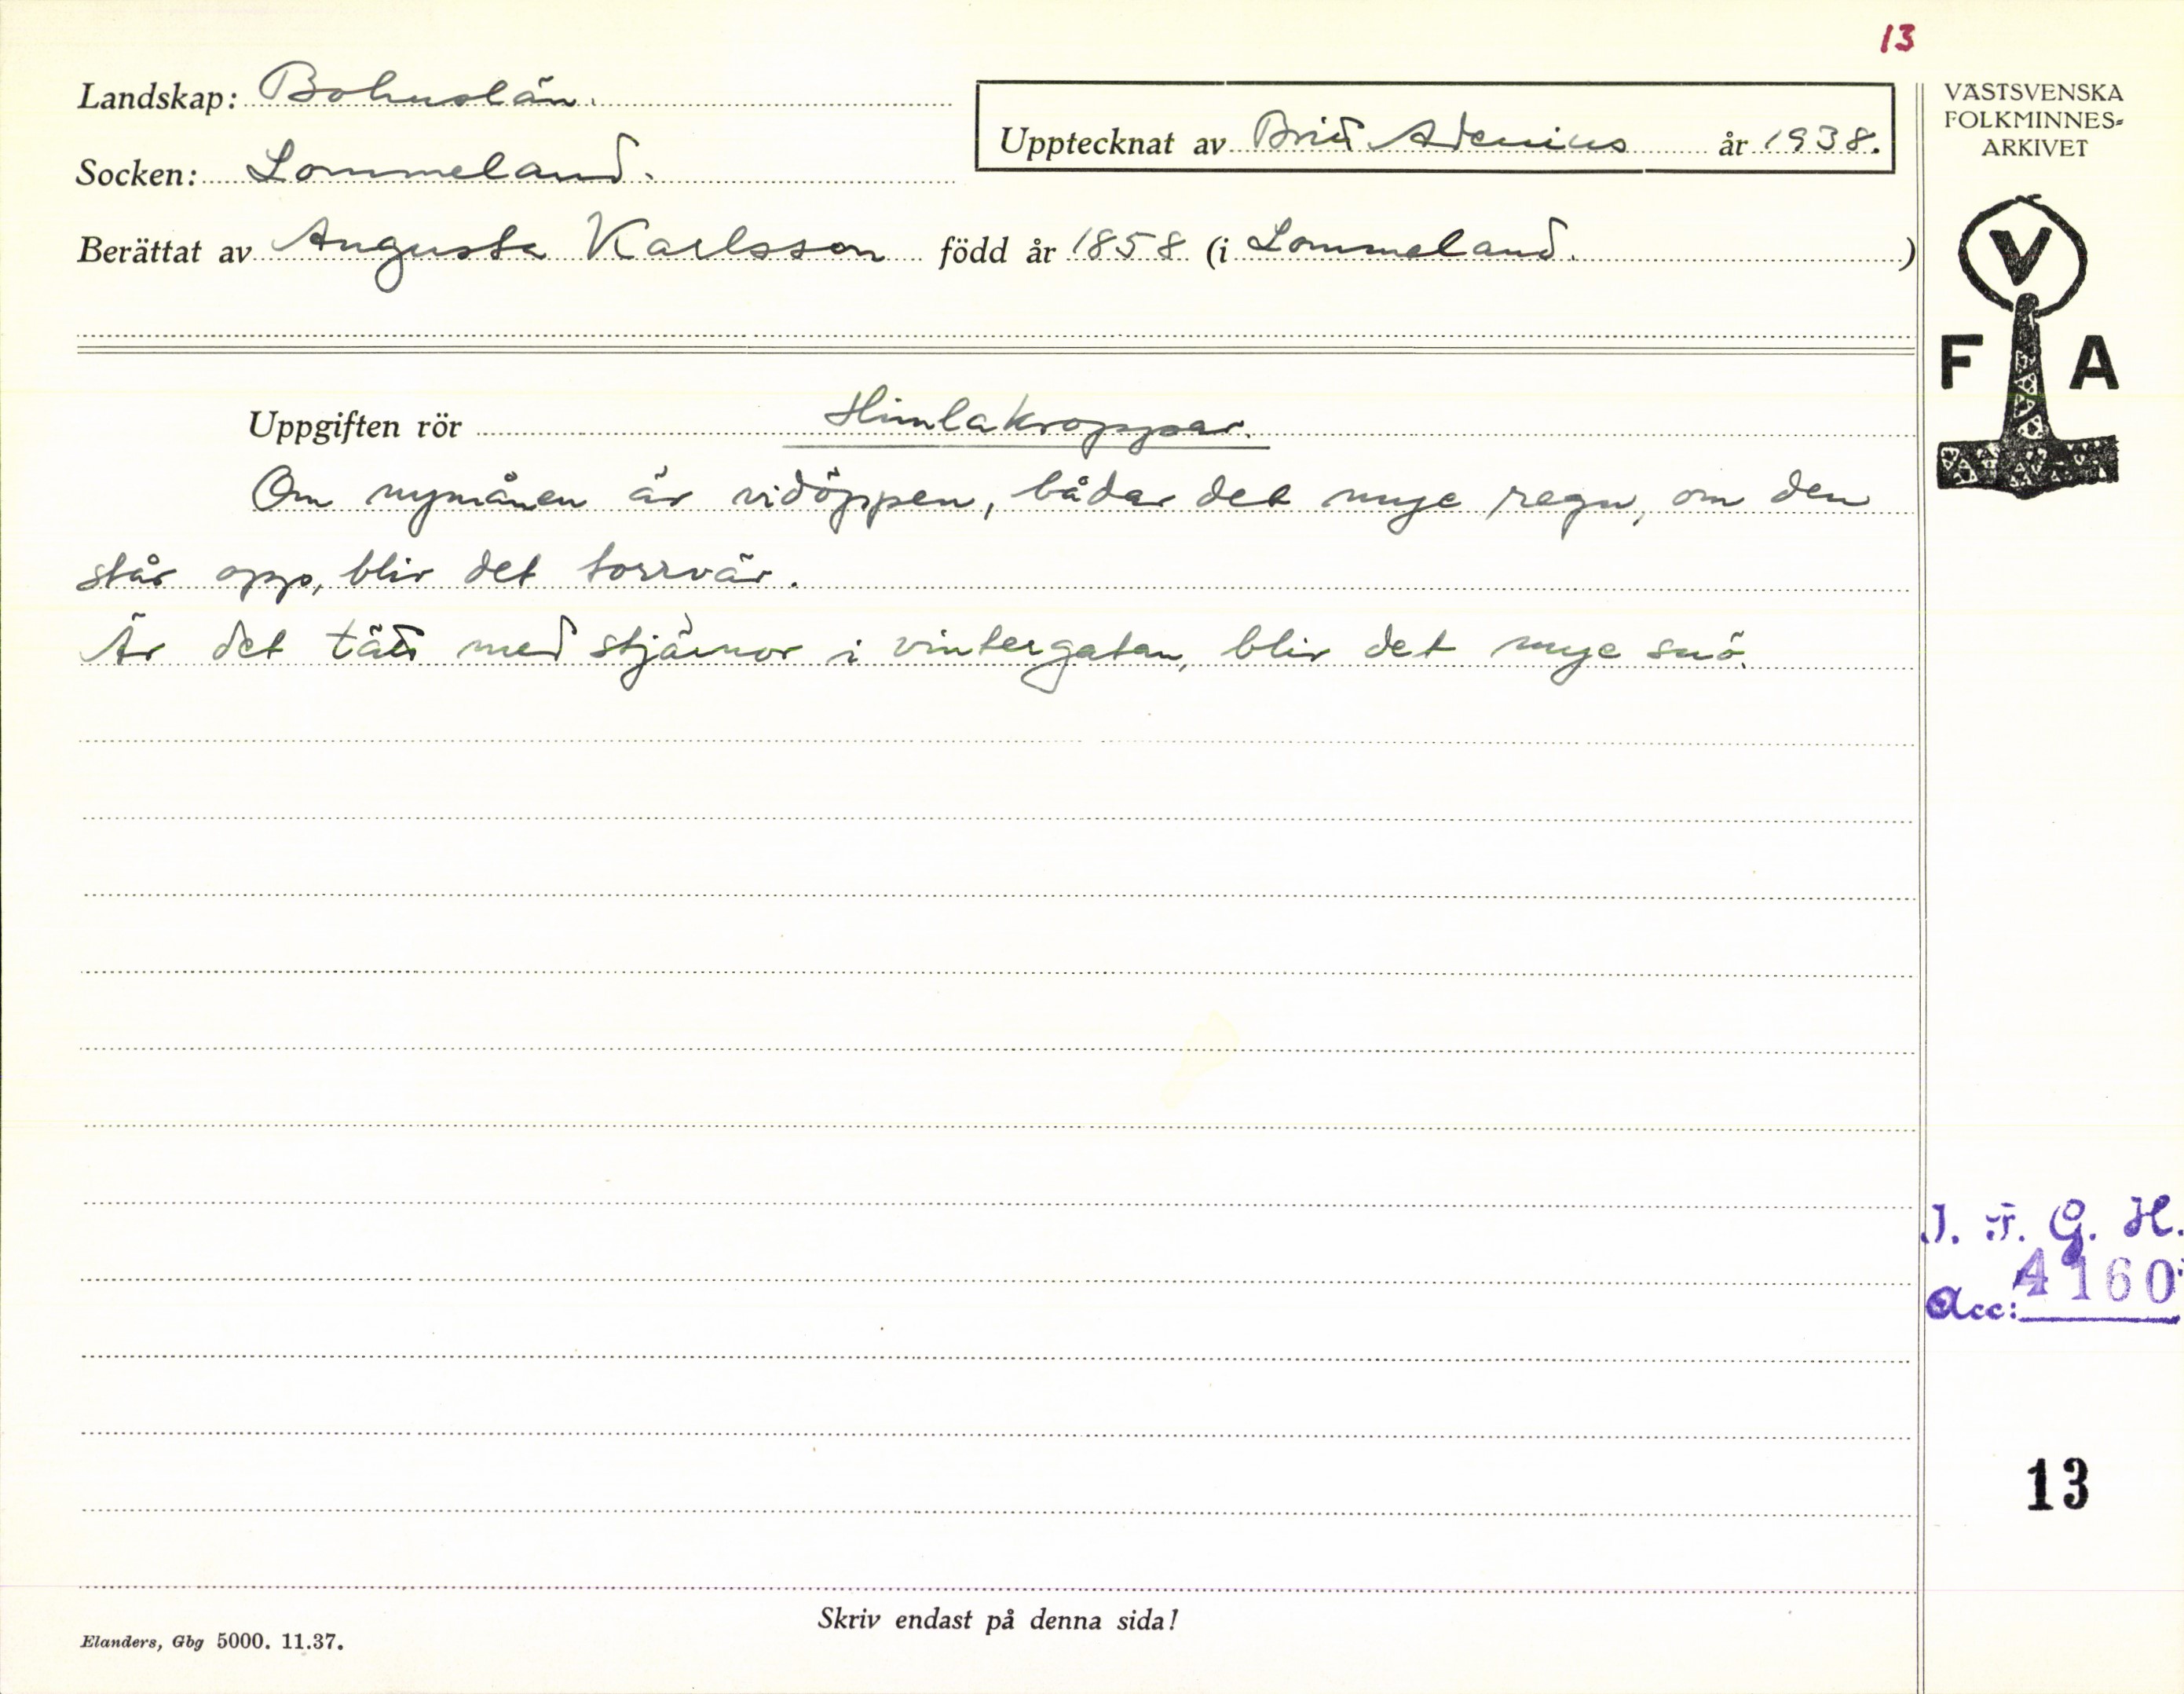 13
Landskap: Bohuslän.
Upptecknat av Britt Adenius år 1938.
Socken: Lommeland.
Berättat av Augusta Karlsson född år 1858 (i Lommeland.)
VÄSTSVENSKA
FOLKMINNES=
ARKIVET
V
F A
Uppgiften rör Himlakroppar.
Om nymånen är vidöppen, bådar det mye regn, om den
står opp, blir det torrvär.
Är det tätt med stjärnor i vintergatan, blir det mye snö.
I. F. G. H.
Acc: 4160
13
Skriv endast på denna sida!
Elanders, Gbg 5000. 11.37.